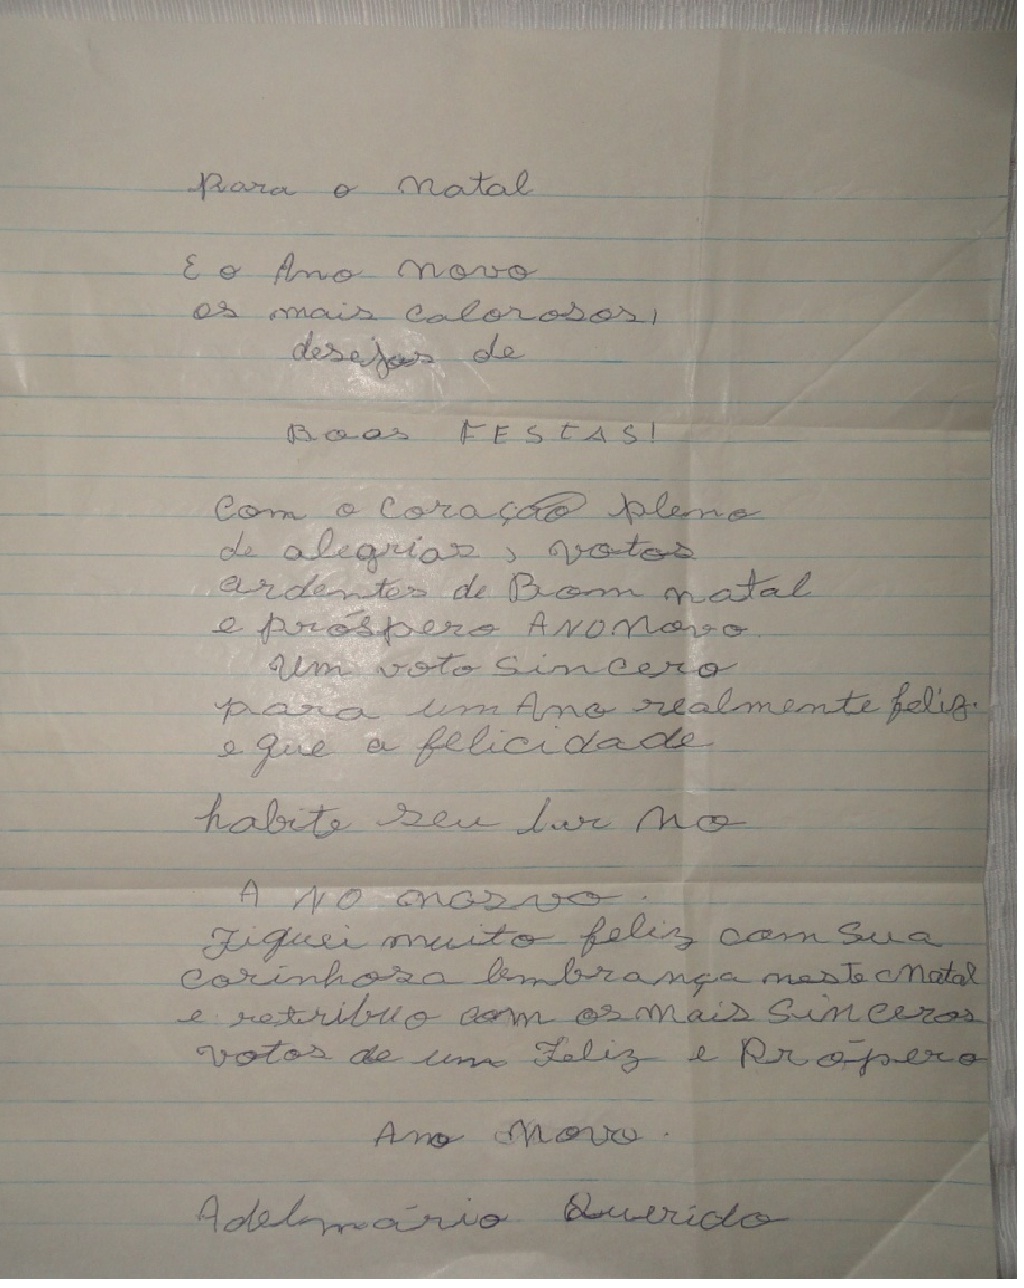 Para o Natal
E o Ano Novo
os mais calorosos,
desejos de
Boas FESTAS!
Com o Coração pleno
de alegrias, votos
ardentes de Bom natal
e próspero ANO Novo.
Um voto sincero
para um Ano realmente feliz.
e que a felicidade
habite seu lar no
A NO nosvo.
Fiquei muito feliz com sua
corinhosa lembrança neste Natal
e retribuo com os mais Sinceros
votos de um Feliz e Própero
Ano Novo.
Adelmário Querido